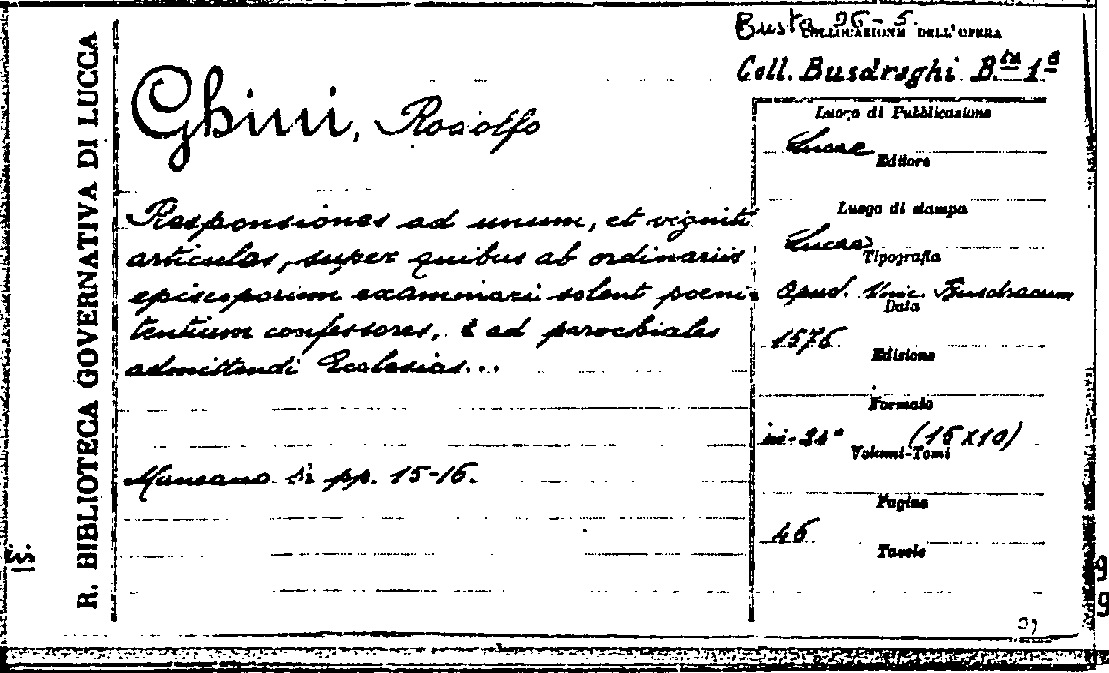 Busta 96-5.
COLLOCAZIONE DELL'OPERA
Coll. Busdraghi B.ta 1ª
R. BIBLIOTECA GOVERNATIVA DI LUCCA
Ghini, Rodolfo
Responsiones ad unum, et viginti
articulos, super quibus ab ordinariis
episcoporum examinari solent poeni-
tentium confessores, & ad parochiales
admittendi Ecclesias...
Mancano le pp. 15-16.
Luogo di Pubblicazione
Lucae
Editore
Luogo di stampa
Lucae
Tipografia
apud. Vinc. Busdracum
Data
1576
Edizione
Formato
in-24° (15X10)
Volumi-Tomi
Pagine
46
Tavole